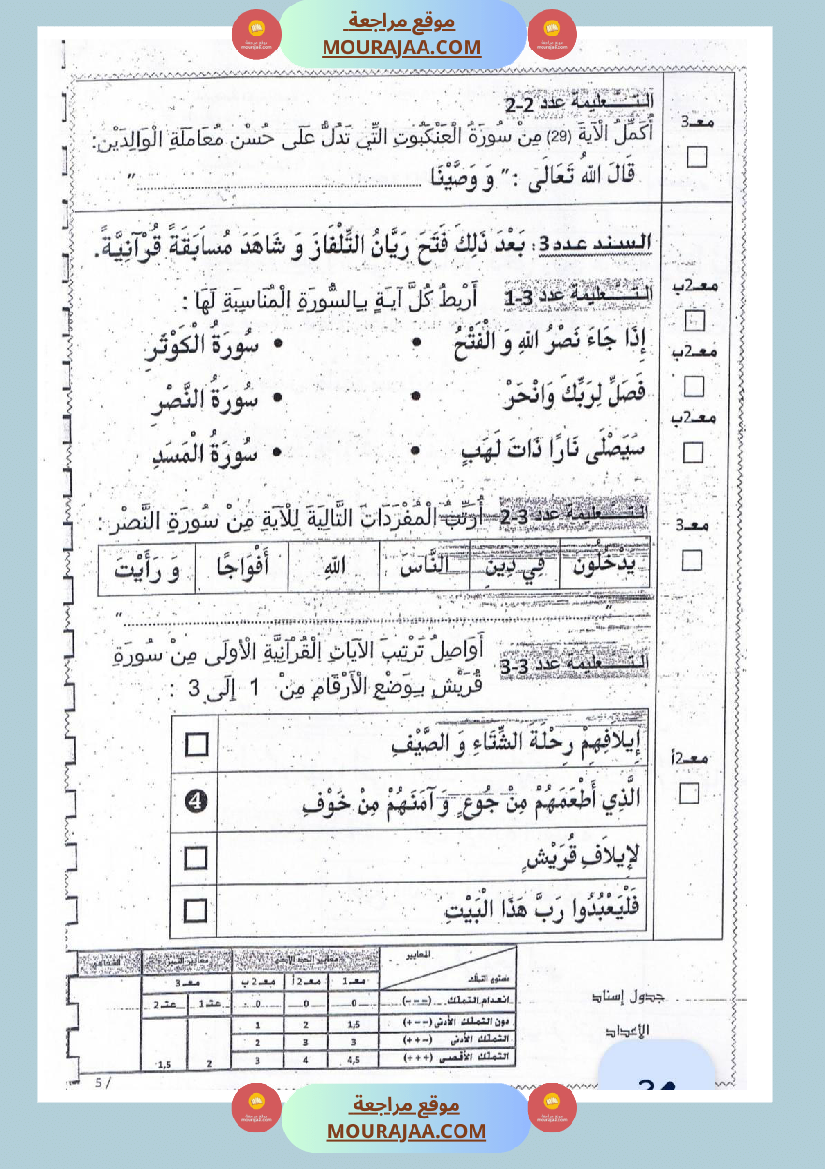 موقع مراجعة
MOURAJAA.COM
التـــعليمة عدد 2-2
معـ3
أُكَمِّلُ الْآيَةَ (29) مِنْ سُورَةُ الْعَنْكَبُوتِ التِّي تَدُلُّ عَلَى حُسْنِ مُعَامَلَةِ الْوَالِدَيْنِ:
قَالَ اللهُ تَعَالَى : " وَ وَصَّيْنَا ............................................"
السند عدد3: بَعْدَ ذَلِكَ فَتَحَ رَيَّانُ التِّلْفَازَ وَ شَاهَدَ مُسَابَقَةً قُرْآنِيَّةً.
معـ2ب
التـــعليمة عدد 3-1 أَرْبِطُ كُلَّ آيَةٍ بِالسُّورَةِ الْمُنَاسِبَةِ لَهَا :
إِذَا جَاءَ نَصْرُ اللهِ وَ الْفَتْحُ • • سُورَةُ الْكَوْثَرِ
معـ2ب
فَصَلِّ لِرَبِّكَ وَانْحَرْ • • سُورَةُ النَّصْرِ
معـ2ب
سَيَصْلَى نَارًا ذَاتَ لَهَبٍ • • سُورَةُ الْمَسَدِ
معـ3
التـــعليمة عدد 3-2 أُرَتِّبُ الْمُفْرَدَاتِ التَّالِيَةَ لِلْآيَةِ مِنْ سُورَةِ النَّصْرِ :
يَدْخُلُونَ فِي دِينِ النَّاسَ اللهِ أَفْوَاجًا وَ رَأَيْتَ
"............................................"
التـــعليمة عدد 3-3 أُوَاصِلُ تَرْتِيبَ الْآيَاتِ الْقُرْآنِيَّةِ الْأُولَى مِنْ سُورَةِ
قُرَيْشٍ بِوَضْعِ الْأَرْقَامِ مِنْ 1 إِلَى 3 :
معـ2أ
إِيلَافِهِمْ رِحْلَةَ الشِّتَاءِ وَ الصَّيْفِ
الَّذِي أَطْعَمَهُمْ مِنْ جُوعٍ وَ آمَنَهُمْ مِنْ خَوْفٍ 4
لِإِيلَافِ قُرَيْشٍ
فَلْيَعْبُدُوا رَبَّ هَذَا الْبَيْتِ
جدول إسناد
الأعداد
المعايير
معـ1 معـ2أ معـ2ب معـ3
انعدام التملك (---) 0 0 0 عتـ1 عتـ2
دون التملك الأدنى (+--) 1,5 2 1
التملك الأدنى (++-) 3 3 2
التملك الأقصى (+++) 4,5 4 3 2 1,5
5 /
موقع مراجعة
MOURAJAA.COM